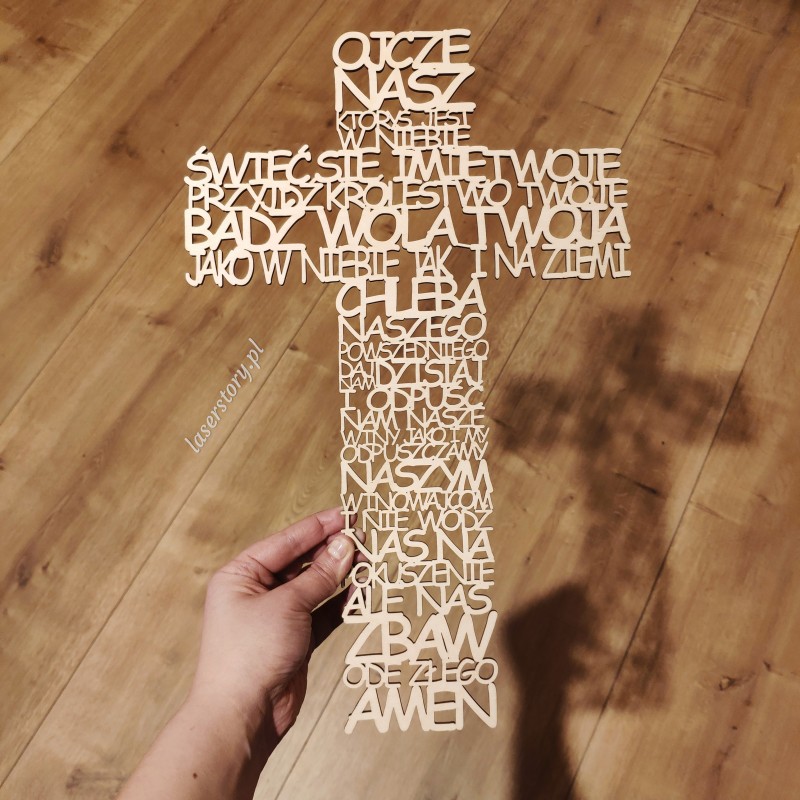 OJCZE
NASZ
KTÓRYŚ JEST
W NIEBIE
ŚWIĘĆ SIĘ IMIĘ TWOJE
PRZYJDŹ KRÓLESTWO TWOJE
BĄDŹ WOLA TWOJA
JAKO W NIEBIE TAK I NA ZIEMI
CHLEBA
NASZEGO
POWSZEDNIEGO
DAJ NAM DZISIAJ
I ODPUŚĆ
NAM NASZE
WINY JAKO I MY
ODPUSZCZAMY
NASZYM
WINOWAJCOM
I NIE WÓDŹ
NAS NA
POKUSZENIE
ALE NAS
ZBAW
ODE ZŁEGO
AMEN
laserstory.pl